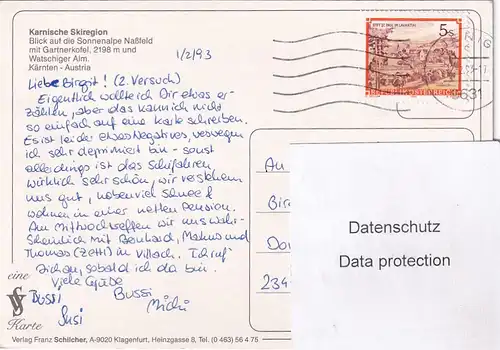 Karnische Skiregion
Blick auf die Sonnenalpe Naßfeld
mit Gartnerkofel, 2198 m und
Watschiger Alm.
Kärnten - Austria
1/2/93
Liebe Birgit! (2. Versuch)
Eigentlich wollte ich Dir etwas er-
zählen, aber das kann ich nicht
so einfach auf eine Karte schreiben.
Es ist leider etwas Negatives, weswegen
ich sehr deprimiert bin - sonst
allerdings ist das Schifahren
wirklich sehr schön, wir verstehen
uns gut, haben viel Schnee &
wohnen in einer netten Pension.
Am Mittwoch treffen wir uns wahr-
scheinlich mit Bernhard, Markus und
Thomas (Zetti) in Villach. Ich ruf
Dich an, sobald ich da bin.
Viele Grüße
Bussi
Bussi
Michi
Susi
eine
Karte
Verlag Franz Schilcher, A-9020 Klagenfurt, Heinzgasse 8, Tel. (0 463) 56 4 75
5 S
REPUBLIK ÖSTERREICH
9631
An
Bir
Do
234
Datenschutz
Data protection